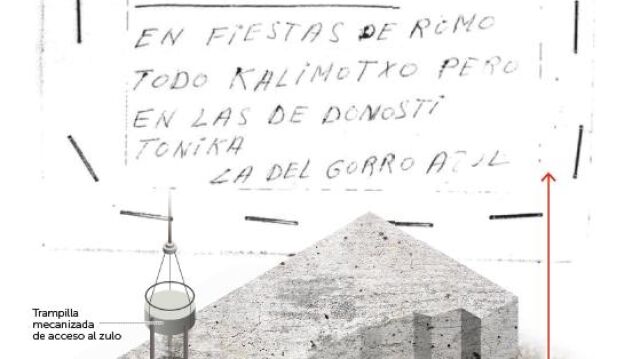 EN FIESTAS DE ROMO
TODO KALIMOTXO PERO
EN LAS DE DONOSTI
TONIKA
LA DEL GORRO AZUL
Trampilla
mecanizada
de acceso al zulo